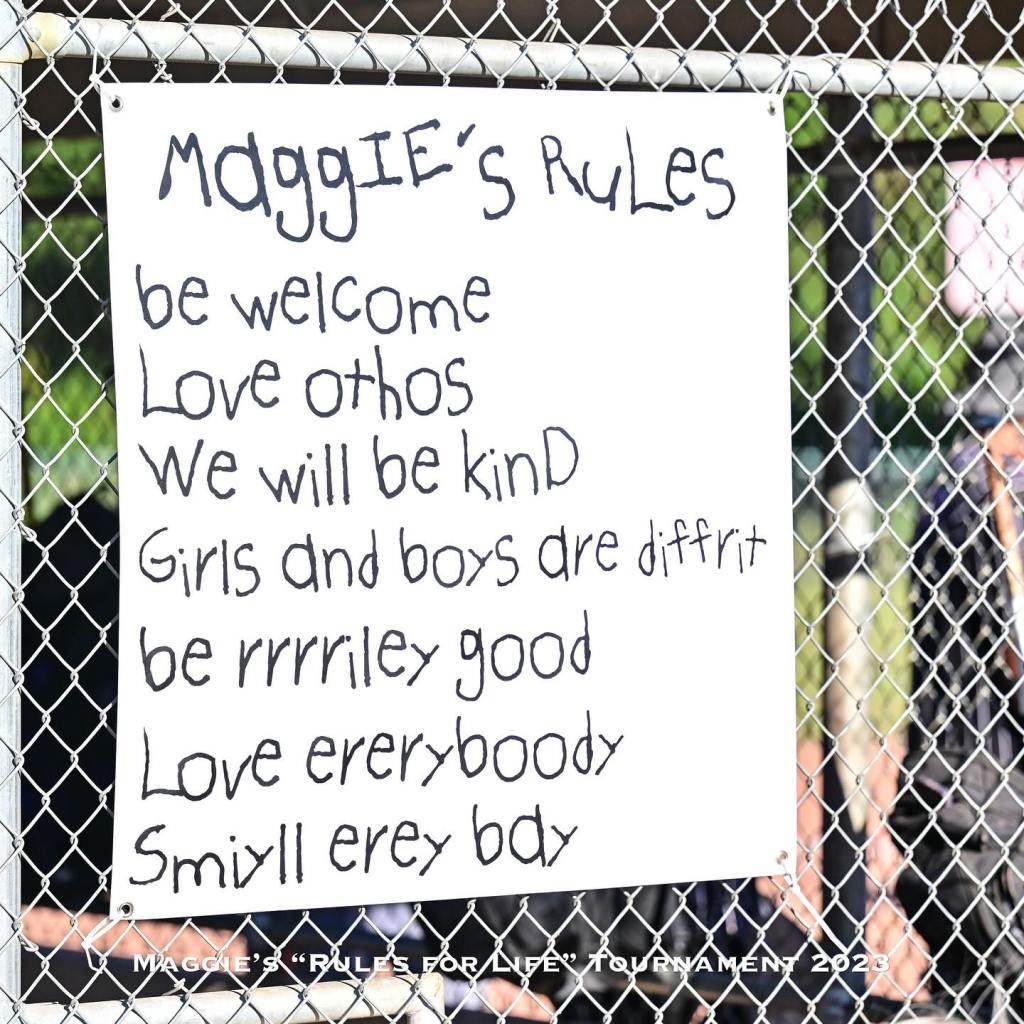 MaggIE's RuLes
be welcome
Love othos
We will be kinD
Girls and boys are diffrit
be rrrriley good
Love ereryboody
Smiyll erey bdy
MAGGIE'S “RULES FOR LIFE” TOURNAMENT 2023